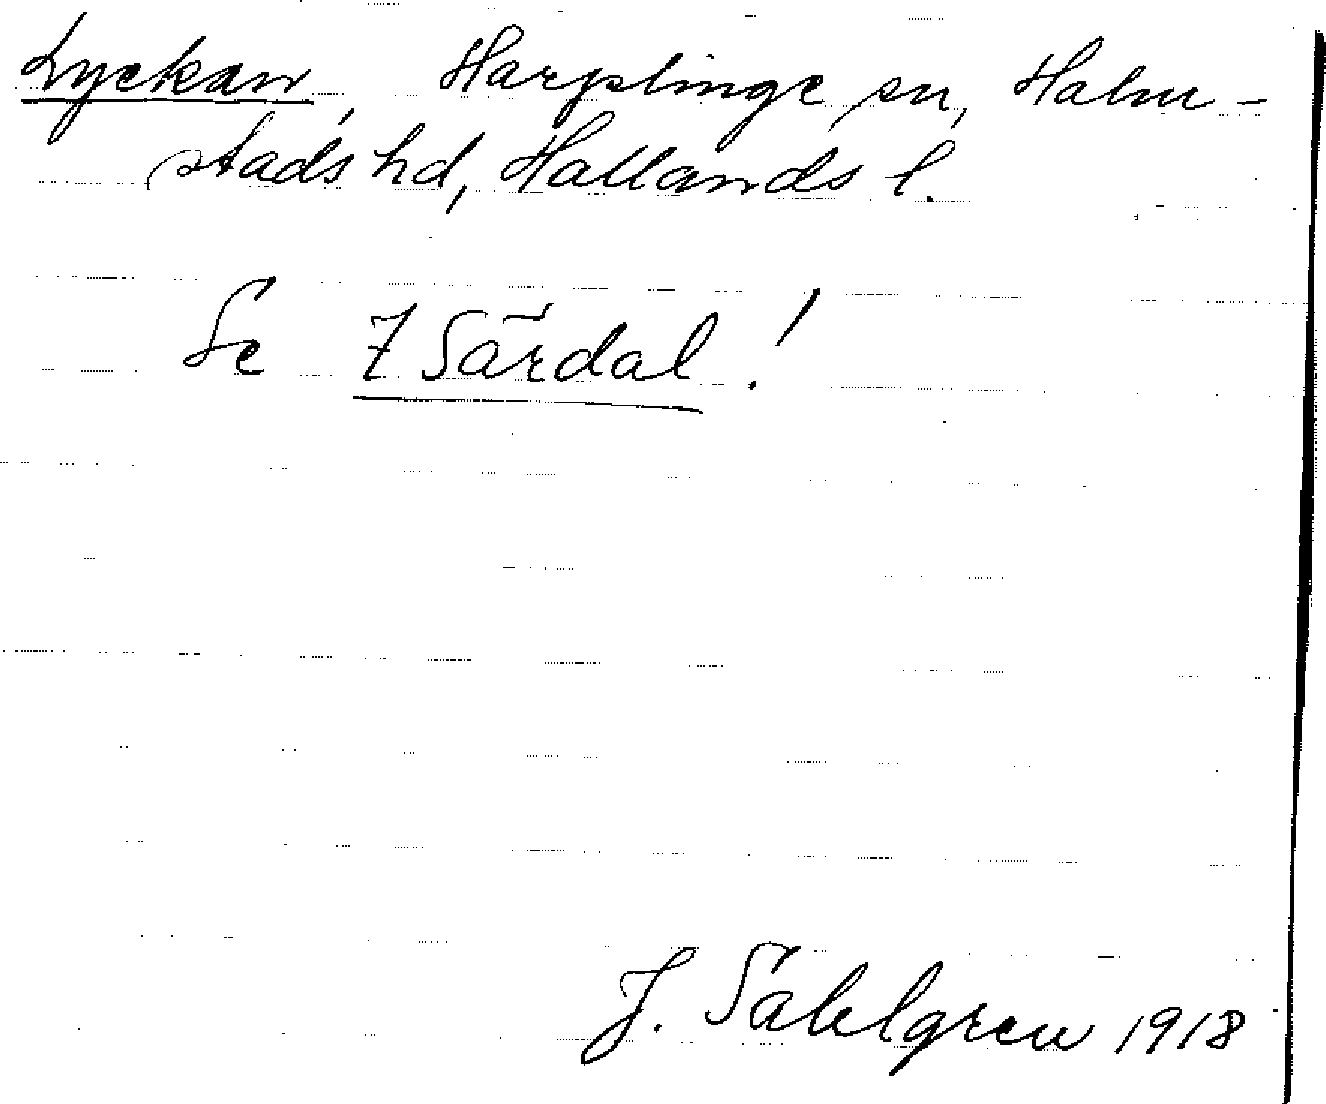 Lyckan, Harplinge sn, Halm-
stads hd, Hallands l.
Se 7 Särdal!
J. Sahlgren 1918